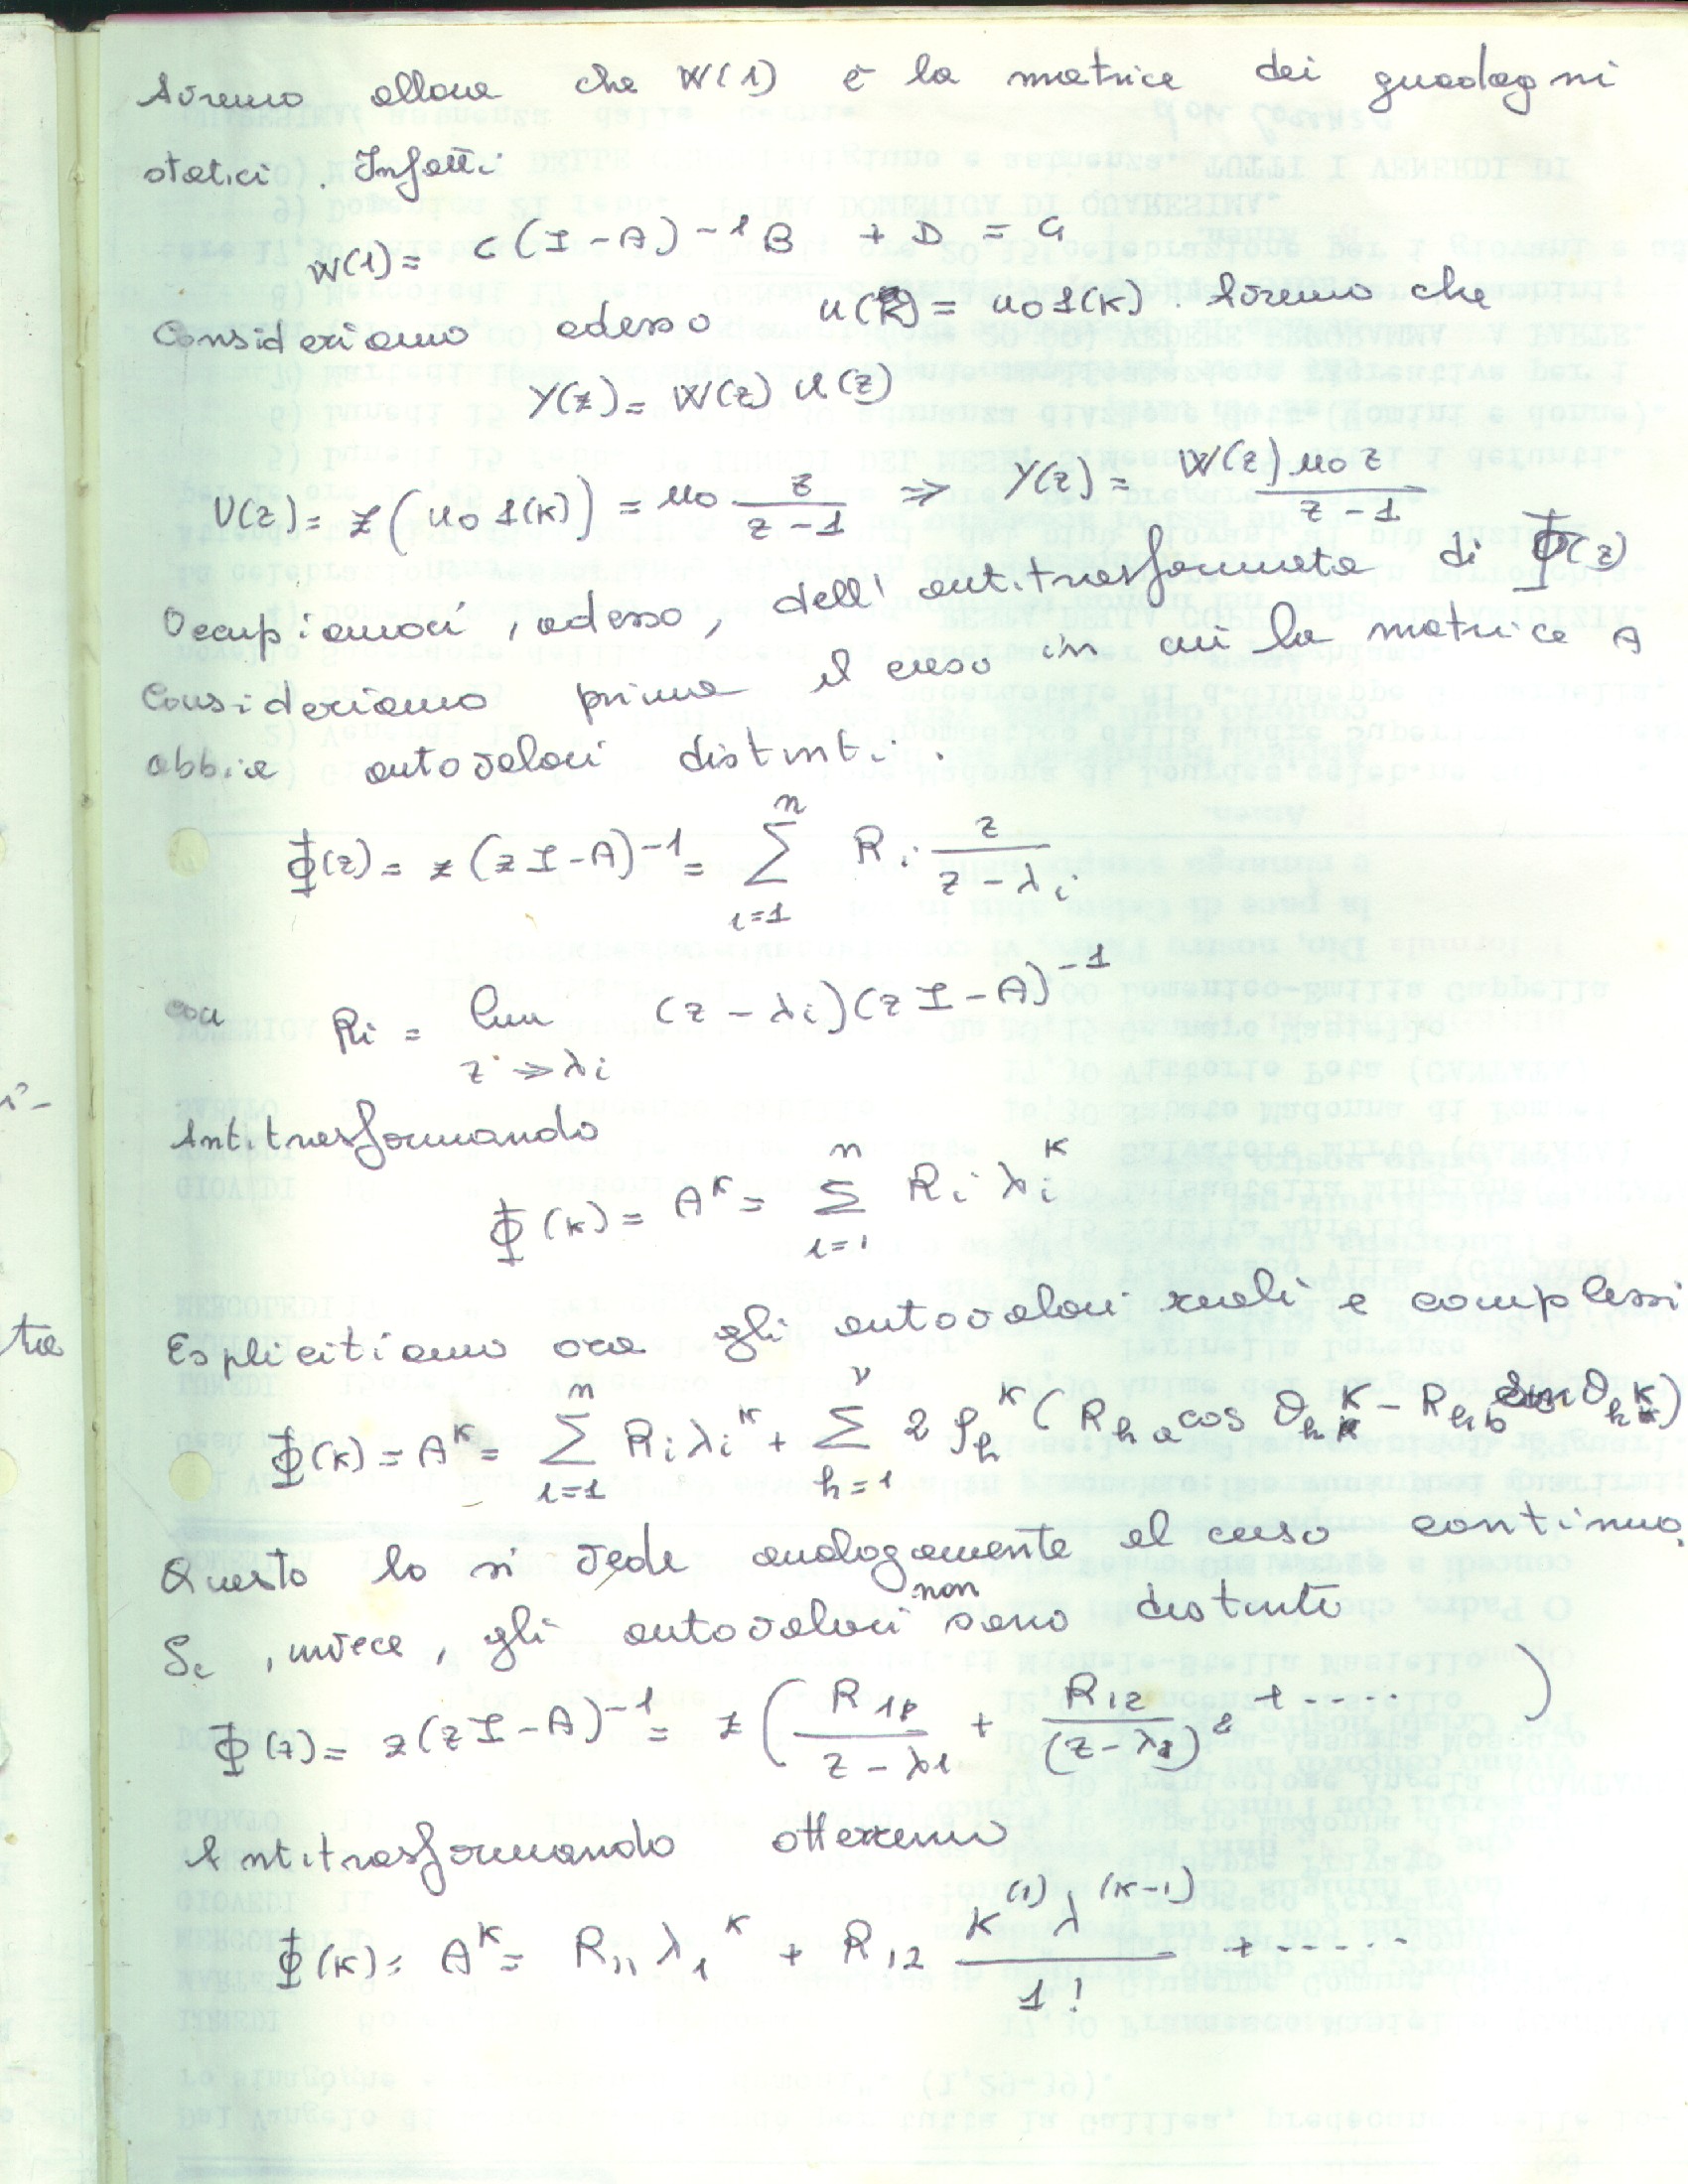 Avremo allora che W(1) è la matrice dei guadagni
statici. Infatti
W(1) = C(I-A)^-1 B + D = G
Consideriamo adesso u(k) = u0 1(k). Avremo che
Y(z) = W(z) U(z)
U(z) = Z(u0 1(k)) = u0 z/(z-1) ⇒ Y(z) = W(z) u0 z/(z-1)
Occupiamoci, adesso, dell'antitrasformata di Φ(z)
Consideriamo prima il caso in cui la matrice A
abbia autovalori distinti.
Φ(z) = z(zI-A)^-1 = Σ_{i=1}^{n} Ri z/(z-λi)
con Ri = lim_{z→λi} (z-λi)(zI-A)^-1
Antitrasformando
Φ(k) = A^k = Σ_{i=1}^{n} Ri λi^k
Esplicitiamo ora gli autovalori reali e complessi
Φ(k) = A^k = Σ_{i=1}^{n} Ri λi^k + Σ_{h=1}^{ν} 2 ρh^k (Rha cos θh k - Rhb sen θh k)
Questo lo si vede analogamente al caso continuo.
Se, invece, gli autovalori non sono distinti
Φ(z) = z(zI-A)^-1 = z( R11/(z-λ1) + R12/(z-λ1)^2 + .... )
Antitrasformando otterremo
Φ(k) = A^k = R11 λ1^k + R12 k^(1) λ^(k-1)/1! + ......